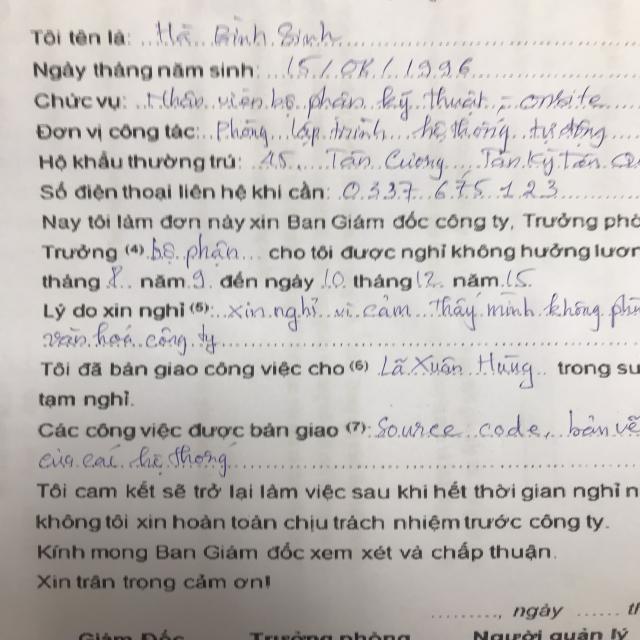 Tôi tên là: Hà Bình Sinh
Ngày tháng năm sinh: 15/08/1996
Chức vụ: Nhân viên bộ phận kỹ thuật - onsite
Đơn vị công tác: Phòng lập trình hệ thống tự động
Hộ khẩu thường trú: 15 Tân Cương Tân Kỳ Tân
Số điện thoại liên hệ khi cần: 0337 675 123
Nay tôi làm đơn này xin Ban Giám đốc công ty, Trưởng
Trưởng (4) bộ phận cho tôi được nghỉ không hưởng
tháng 8 năm 9 đến ngày 10 tháng 12 năm 15
Lý do xin nghỉ (5): xin nghỉ vì cảm thấy mình không
văn hoá công ty
Tôi đã bàn giao công việc cho (6) Lã Xuân Hùng trong
tạm nghỉ.
Các công việc được bàn giao (7): Source code, bản vẽ
của các hệ thống
Tôi cam kết sẽ trở lại làm việc sau khi hết thời gian nghỉ
không tôi xin hoàn toàn chịu trách nhiệm trước công ty.
Kính mong Ban Giám đốc xem xét và chấp thuận.
Xin trân trọng cảm ơn!
, ngày
Giám Đốc Trưởng phòng Người quản lý